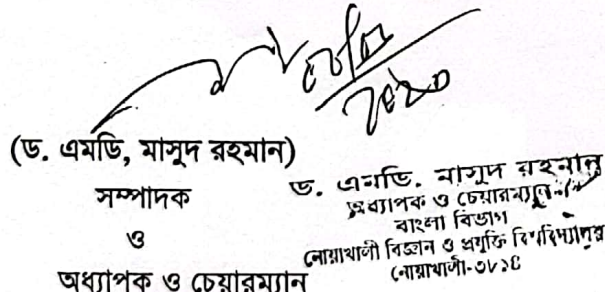 (ড. এমডি, মাসুদ রহমান)
সম্পাদক
ও
অধ্যাপক ও চেয়ারম্যান
ড. এমডি. মাসুদ রহমান
অধ্যাপক ও চেয়ারম্যান
বাংলা বিভাগ
নোয়াখালী বিজ্ঞান ও প্রযুক্তি বিশ্ববিদ্যালয়
নোয়াখালী-৩৮১৪